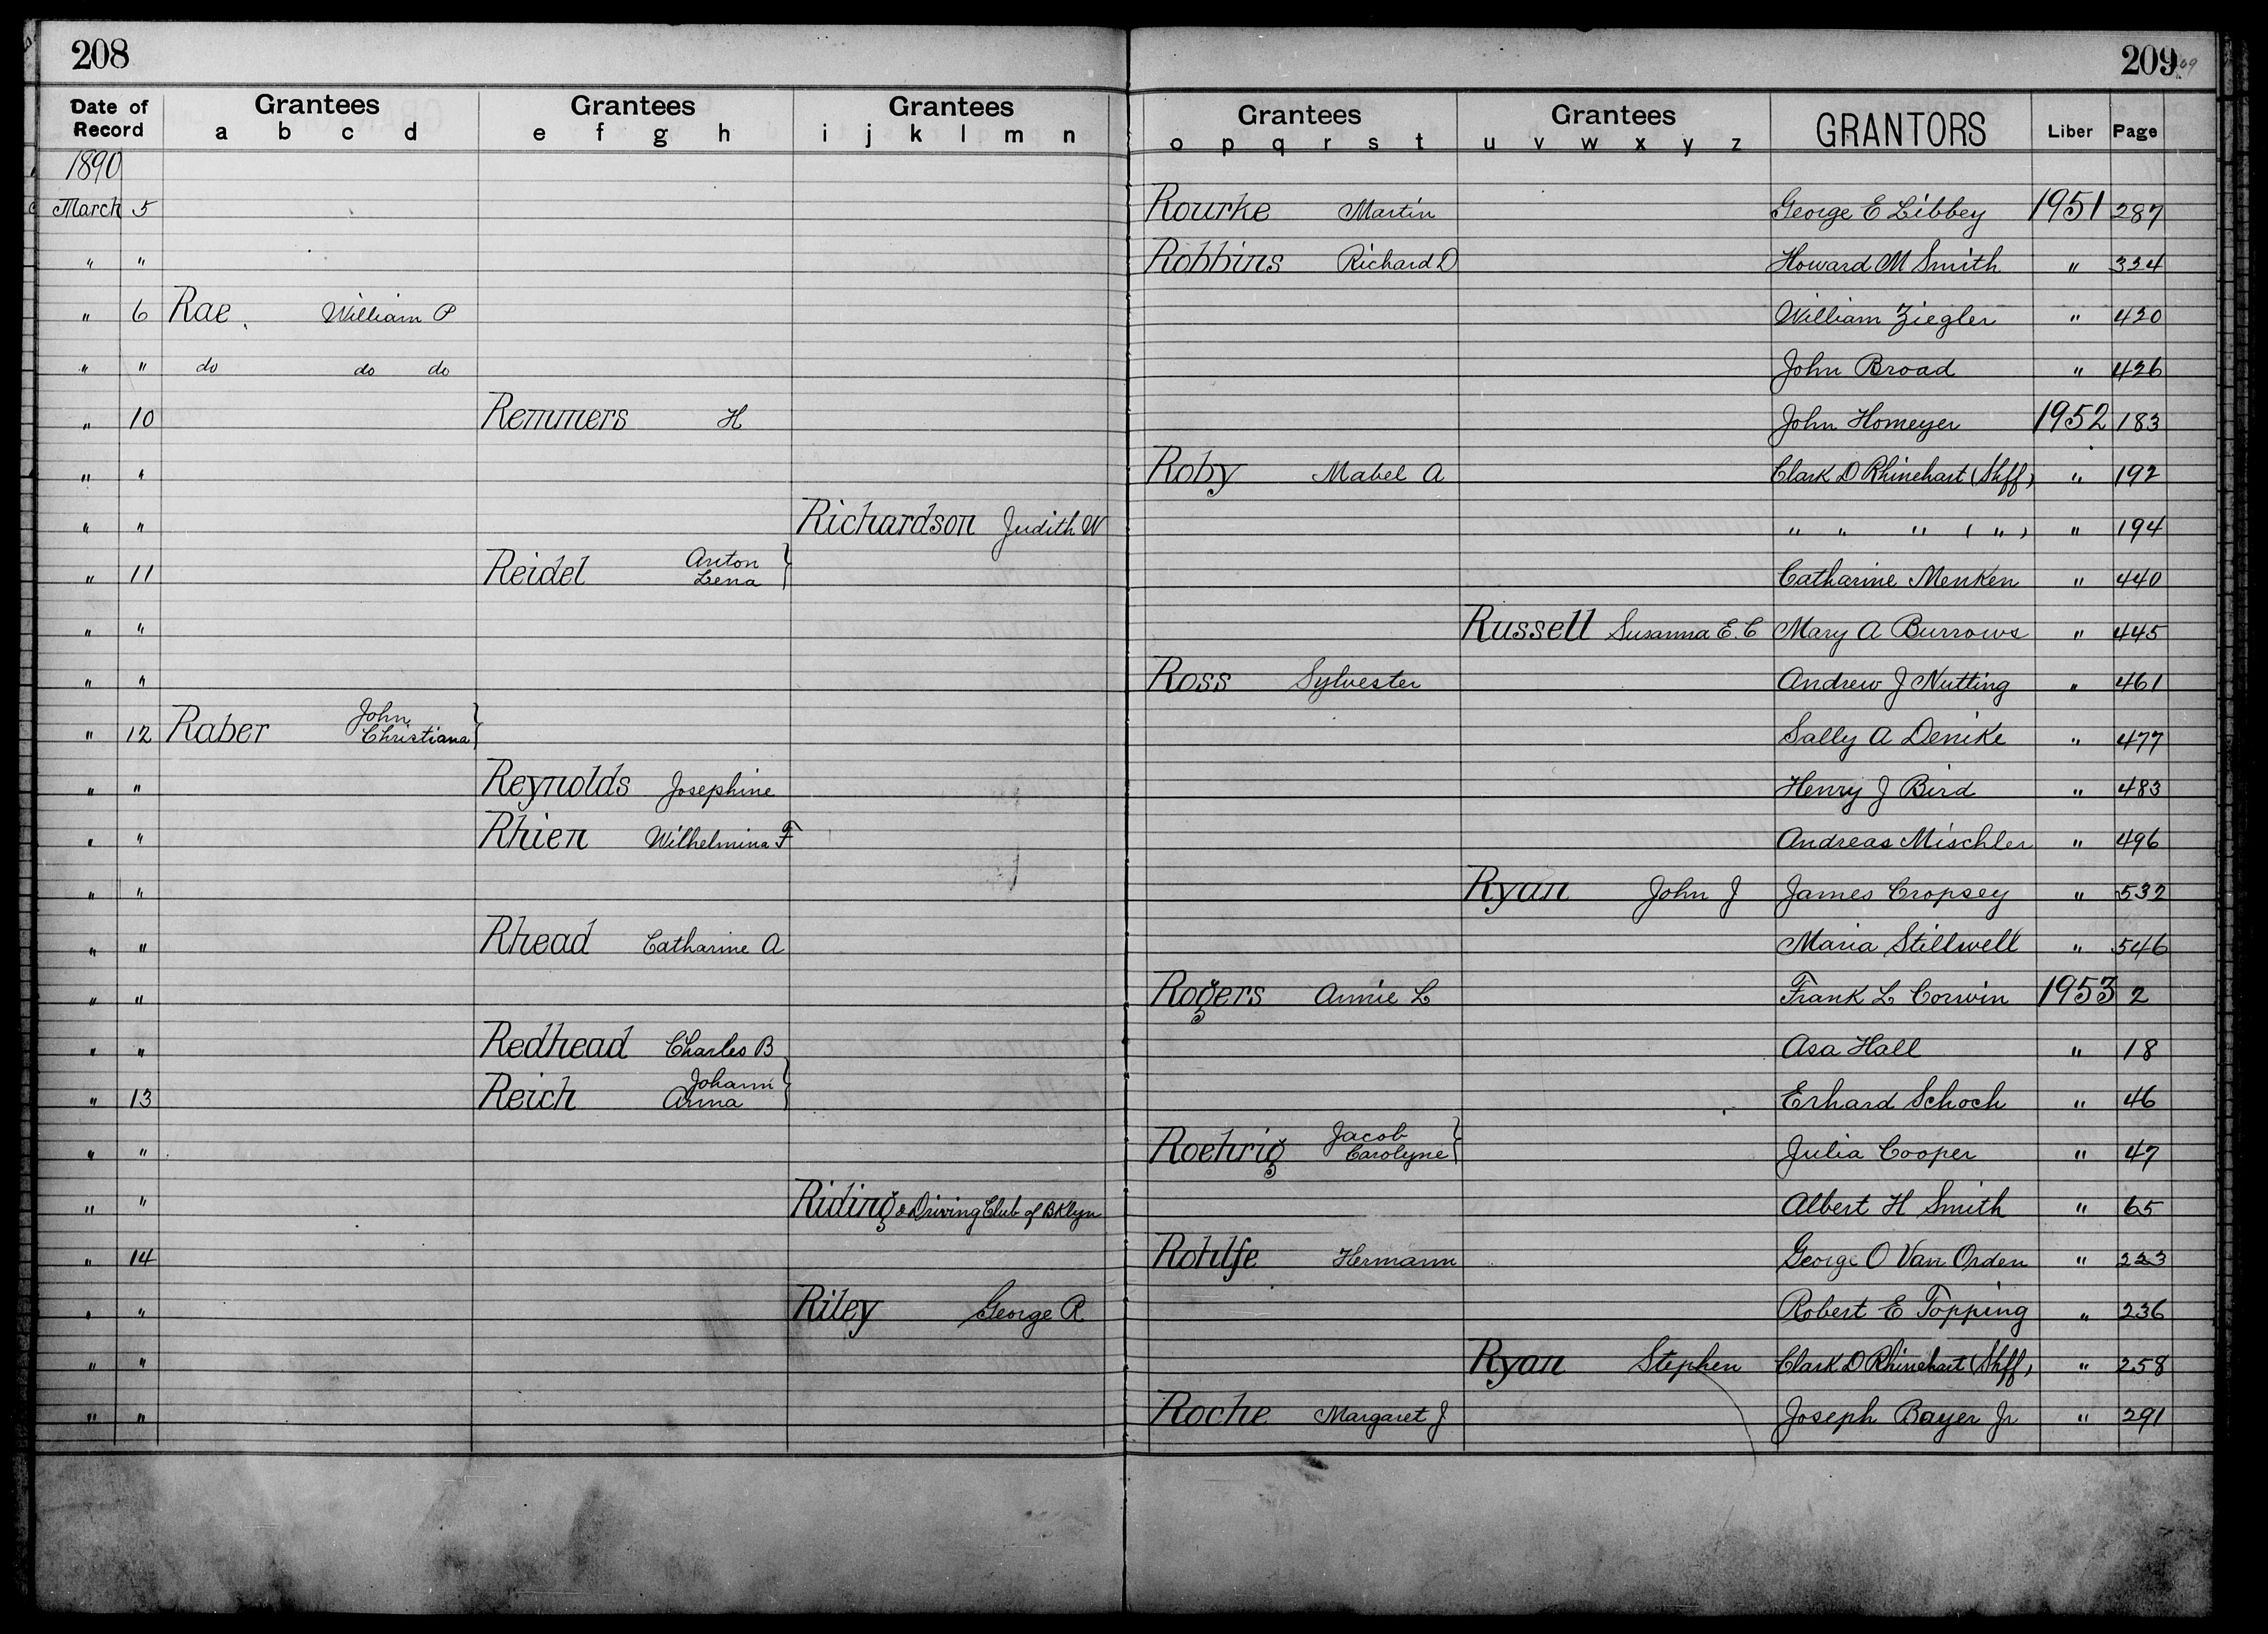 208
209
Date of Record
Grantees a b c d
Grantees e f g h
Grantees i j k l m n
Grantees o p q r s t
Grantees u v w x y z
GRANTORS
Liber
Page
1890
March 5 Rourke Martin George E Libbey 1951 287
" " Robbins Richard D Howard M Smith " 334
" 6 Rae William P William Ziegler " 420
" " do do do John Broad " 426
" 10 Remmers H John Homeyer 1952 183
" " Roby Mabel A Clark D Rhinehart (Shff) " 192
" " Richardson Judith W " " " ( " ) " 194
" 11 Reidel Anton Lena } Catharine Menken " 440
" " Russell Susanna E. C Mary A Burrows " 445
" " Ross Sylvester Andrew J Nutting " 461
" 12 Raber John Christiana } Sally A Denike " 477
" " Reynolds Josephine Henry J Bird " 483
" " Rhien Wilhelmina F Andreas Mischler " 496
" " Ryan John J James Cropsey " 532
" " Rhead Catharine A Maria Stillwell " 546
" " Rogers Annie L Frank L Corwin 1953 2
" " Redhead Charles B Asa Hall " 18
" 13 Reich Johann Anna } Erhard Schoch " 46
" " Roehrig Jacob Carolyne } Julia Cooper " 47
" " Riding & Driving Club of BKlyn Albert H Smith " 65
" 14 Rohlfe Hermann George O Van Orden " 223
" " Riley George R Robert E Topping " 236
" " Ryan Stephen Clark D Rhinehart (Shff) " 258
" " Roche Margaret J Joseph Bayer Jr " 291